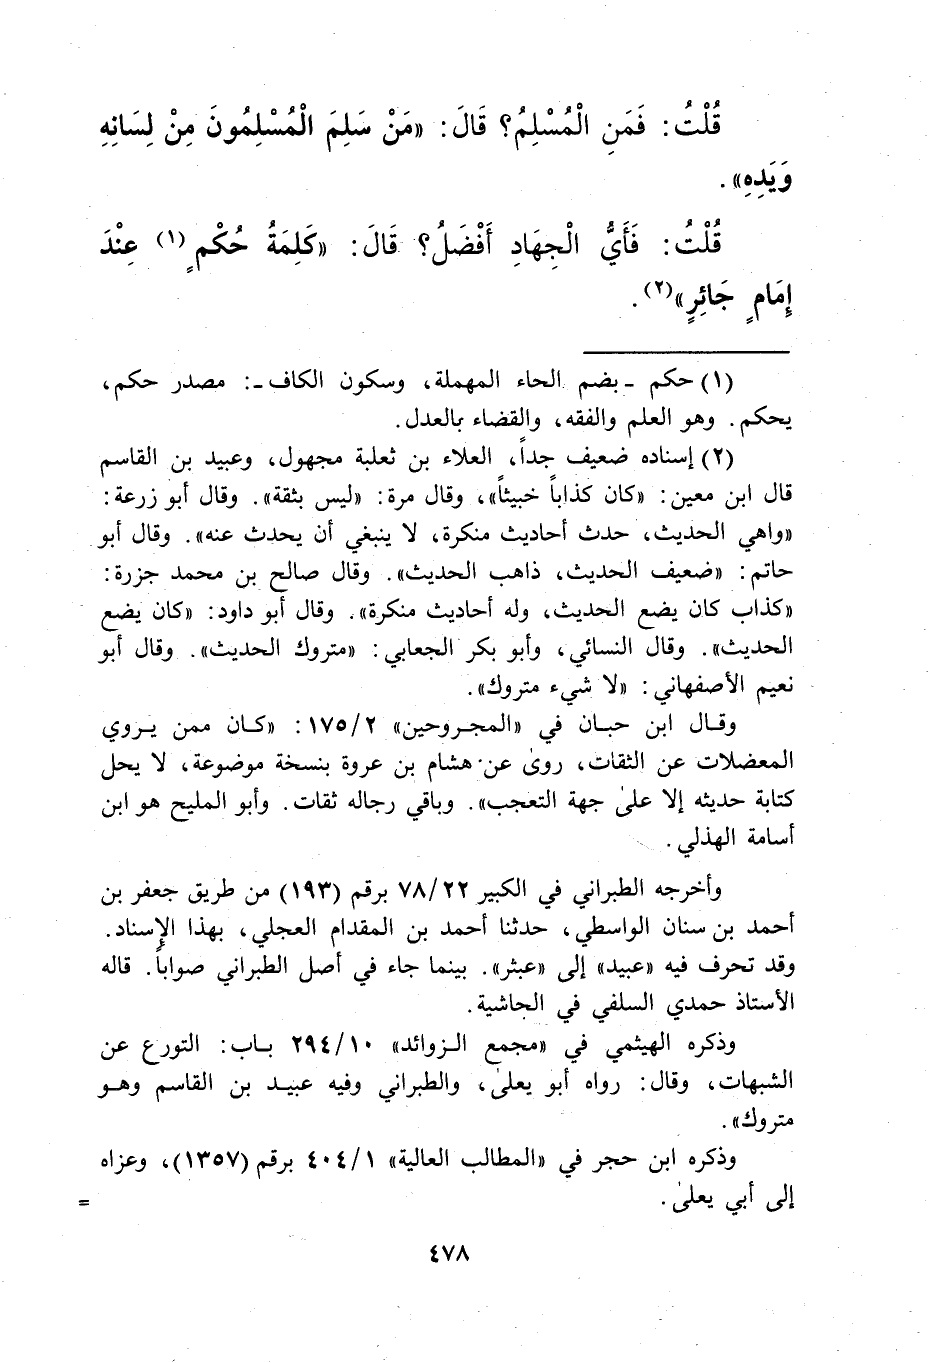 قُلْتُ: فَمَنِ الْمُسْلِمُ؟ قَالَ: «مَنْ سَلِمَ الْمُسْلِمُونَ مِنْ لِسَانِهِ
وَيَدِهِ».
قُلْتُ: فَأَيُّ الْجِهَادِ أَفْضَلُ؟ قَالَ: «كَلِمَةُ حُكْمٍ(١) عِنْدَ
إِمَامٍ جَائِرٍ»(٢).
(١) حكم - بضم الحاء المهملة، وسكون الكاف -: مصدر حكم،
يحكم. وهو العلم والفقه، والقضاء بالعدل.
(٢) إسناده ضعيف جداً، العلاء بن ثعلبة مجهول، وعبيد بن القاسم
قال ابن معين: «كان كذاباً خبيثاً»، وقال مرة: «ليس بثقة». وقال أبو زرعة:
«واهي الحديث، حدث أحاديث منكرة، لا ينبغي أن يحدث عنه». وقال أبو
حاتم: «ضعيف الحديث، ذاهب الحديث». وقال صالح بن محمد جزرة:
«كذاب كان يضع الحديث، وله أحاديث منكرة». وقال أبو داود: «كان يضع
الحديث». وقال النسائي، وأبو بكر الجعابي: «متروك الحديث». وقال أبو
نعيم الأصفهاني: «لا شيء متروك».
وقال ابن حبان في «المجروحين» ١٧٥/٢: «كان ممن يروي
المعضلات عن الثقات، روىٰ عن هشام بن عروة بنسخة موضوعة، لا يحل
كتابة حديثه إلا علىٰ جهة التعجب». وباقي رجاله ثقات. وأبو المليح هو ابن
أسامة الهذلي.
وأخرجه الطبراني في الكبير ٧٨/٢٢ برقم (١٩٣) من طريق جعفر بن
أحمد بن سنان الواسطي، حدثنا أحمد بن المقدام العجلي، بهذا الإسناد.
وقد تحرف فيه «عبيد» إلى «عبثر». بينما جاء في أصل الطبراني صواباً. قاله
الأستاذ حمدي السلفي في الحاشية.
وذكره الهيثمي في «مجمع الزوائد» ٢٩٤/١٠ باب: التورع عن
الشبهات، وقال: رواه أبو يعلىٰ، والطبراني وفيه عبيد بن القاسم وهو
متروك».
وذكره ابن حجر في «المطالب العالية» ٤٠٤/١ برقم (١٣٥٧)، وعزاه
إلى أبي يعلىٰ.
=
٤٧٨